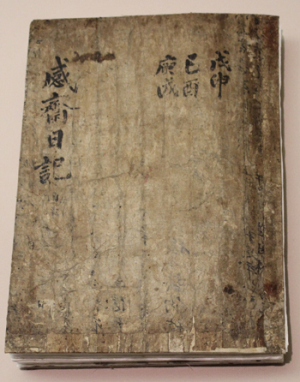 戊申
己酉
庚戌
感齋日記